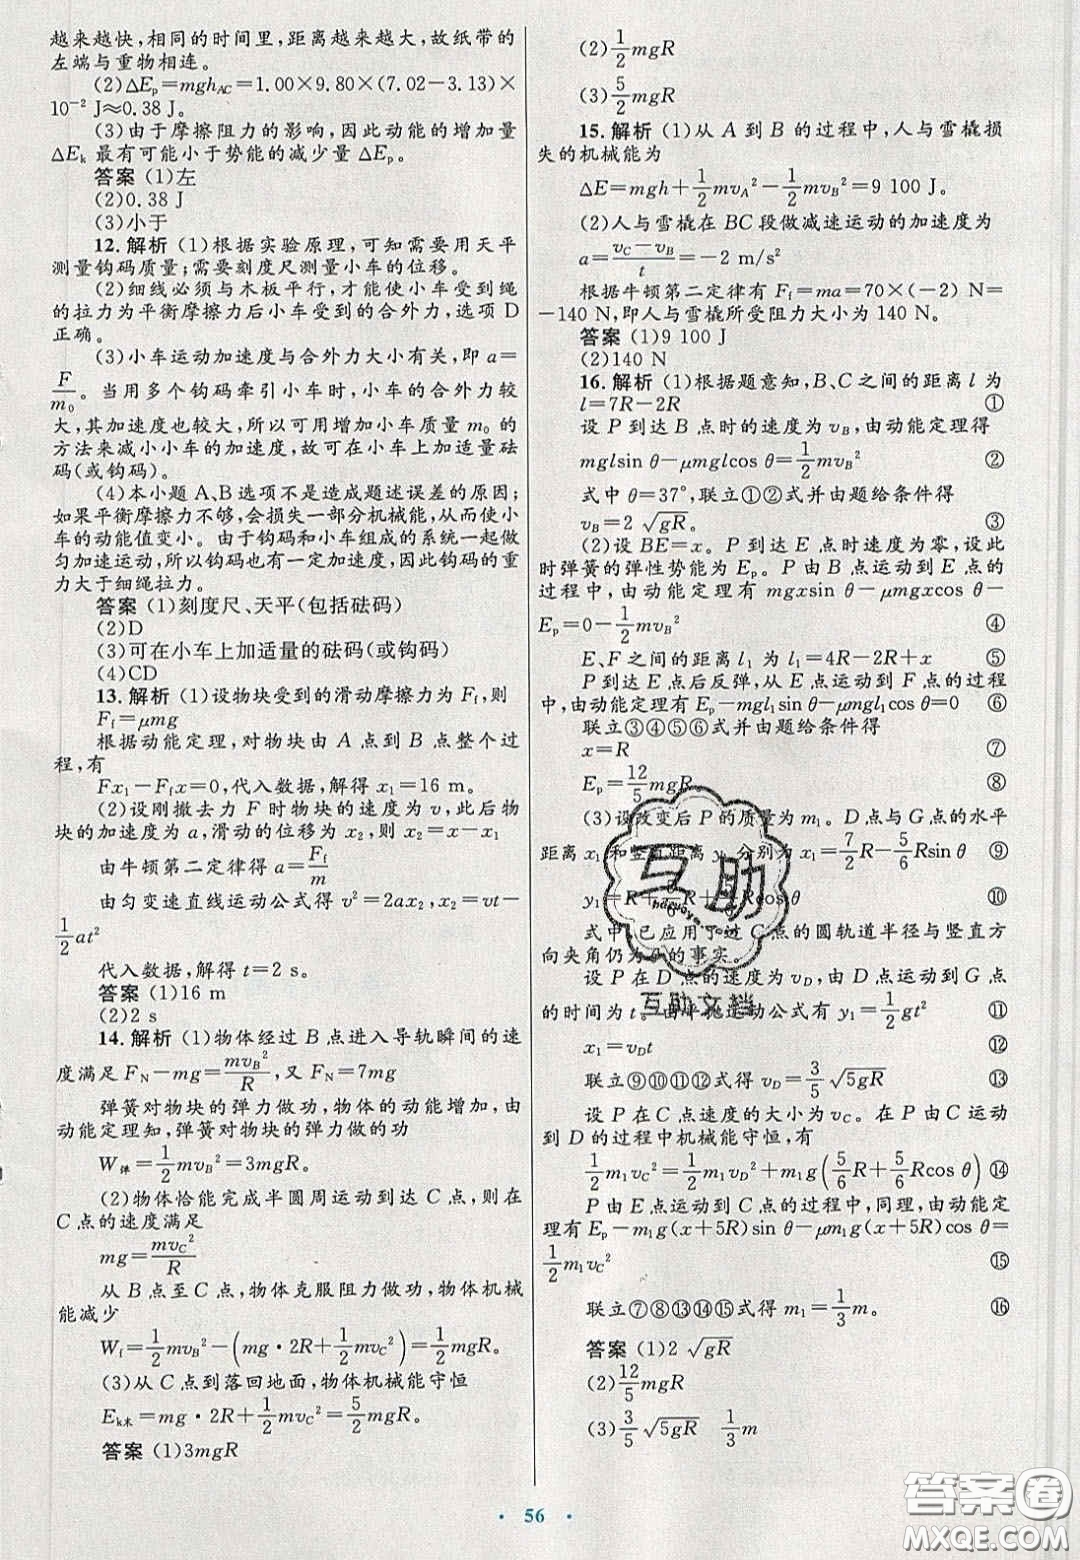 越来越快,相同的时间里,距离越来越大,故纸带的
左端与重物相连。
(2)△Eₚ=mgh_AC=1.00×9.80×(7.02-3.13)×
10⁻² J≈0.38 J。
(3)由于摩擦阻力的影响,因此动能的增加量
△Eₖ 最有可能小于势能的减少量 △Eₚ。
答案 (1)左
(2)0.38 J
(3)小于
12.解析 (1)根据实验原理,可知需要用天平
测量钩码质量;需要刻度尺测量小车的位移。
(2)细线必须与木板平行,才能使小车受到绳
的拉力为平衡摩擦力后小车受到的合外力,选项 D
正确。
(3)小车运动加速度与合外力大小有关,即 a=
F/m₀。当用多个钩码牵引小车时,小车的合外力较
大,其加速度也较大,所以可用增加小车质量 m₀ 的
方法来减小小车的加速度,故可在小车上加适量砝
码(或钩码)。
(4)本小题 A、B 选项不是造成题述误差的原因;
如果平衡摩擦力不够,会损失一部分机械能,从而使小
车的动能值变小。由于钩码和小车组成的系统一起做
匀加速运动,所以钩码也有一定加速度,因此钩码的重
力大于细绳拉力。
答案 (1)刻度尺、天平(包括砝码)
(2)D
(3)可在小车上加适量的砝码(或钩码)
(4)CD
13.解析 (1)设物块受到的滑动摩擦力为 F_f,则
F_f=μmg
根据动能定理,对物块由 A 点到 B 点整个过
程,有
Fx₁-F_fx=0,代入数据,解得 x₁=16 m。
(2)设刚撤去力 F 时物块的速度为 v,此后物
块的加速度为 a,滑动的位移为 x₂,则 x₂=x-x₁
由牛顿第二定律得 a=F_f/m
由匀变速直线运动公式得 v²=2ax₂,x₂=vt-
1/2at²
代入数据,解得 t=2 s。
答案 (1)16 m
(2)2 s
14.解析 (1)物体经过 B 点进入导轨瞬间的速
度满足 F_N-mg=mv_B²/R,又 F_N=7mg
弹簧对物块的弹力做功,物体的动能增加,由
动能定理知,弹簧对物块的弹力做的功
W弹=1/2mv_B²=3mgR。
(2)物体恰能完成半圆周运动到达 C 点,则在
C 点的速度满足
mg=mv_C²/R
从 B 点至 C 点,物体克服阻力做功,物体机械
能减少
W_f=1/2mv_B²-(mg·2R+1/2mv_C²)=1/2mgR。
(3)从 C 点到落回地面,物体机械能守恒
Eₖ末=mg·2R+1/2mv_C²=5/2mgR。
答案 (1)3mgR
(2)1/2mgR
(3)5/2mgR
15.解析 (1)从 A 到 B 的过程中,人与雪橇损
失的机械能为
△E=mgh+1/2mv_A²-1/2mv_B²=9 100 J。
(2)人与雪橇在 BC 段做减速运动的加速度为
a=(v_C-v_B)/t=-2 m/s²
根据牛顿第二定律有 F_f=ma=70×(-2) N=
-140 N,即人与雪橇所受阻力大小为 140 N。
答案 (1)9 100 J
(2)140 N
16.解析 (1)根据题意知,B、C 之间的距离 l 为
l=7R-2R ①
设 P 到达 B 点时的速度为 v_B,由动能定理得
mglsin θ-μmglcos θ=1/2mv_B² ②
式中 θ=37°,联立①②式并由题给条件得
v_B=2√gR。 ③
(2)设 BE=x。P 到达 E 点时速度为零,设此
时弹簧的弹性势能为 Eₚ。P 由 B 点运动到 E 点的
过程中,由动能定理有 mgxsin θ-μmgxcos θ-
Eₚ=0-1/2mv_B² ④
E、F 之间的距离 l₁ 为 l₁=4R-2R+x ⑤
P 到达 E 点后反弹,从 E 点运动到 F 点的过程
中,由动能定理有 Eₚ-mgl₁sin θ-μmgl₁cos θ=0 ⑥
联立③④⑤⑥式并由题给条件得
x=R ⑦
Eₚ=12/5mgR ⑧
(3)设改变后 P 的质量为 m₁。D 点与 G 点的水平
距离 x₁ 和竖直距离 y₁ 分别为 x₁=7/2R-5/6Rsin θ ⑨
y₁=R+5/6R+5/6Rcos θ ⑩
式中,已应用了过 C 点的圆轨道半径与竖直方
向夹角仍为 θ 的事实。
设 P 在 D 点的速度为 v_D,由 D 点运动到 G 点
的时间为 t。由平抛运动公式有 y₁=1/2gt² ⑪
x₁=v_Dt ⑫
联立⑨⑩⑪⑫式得 v_D=3/5√5gR ⑬
设 P 在 C 点速度的大小为 v_C。在 P 由 C 运动
到 D 的过程中机械能守恒,有
1/2m₁v_C²=1/2m₁v_D²+m₁g(5/6R+5/6Rcos θ) ⑭
P 由 E 点运动到 C 点的过程中,同理,由动能定
理有 Eₚ-m₁g(x+5R)sin θ-μm₁g(x+5R)cos θ=
1/2m₁v_C² ⑮
联立⑦⑧⑬⑭⑮式得 m₁=1/3m。 ⑯
答案 (1)2√gR
(2)12/5mgR
(3)3/5√5gR 1/3m
互助
互助文档
· 56 ·
答案圈
MXQE.COM